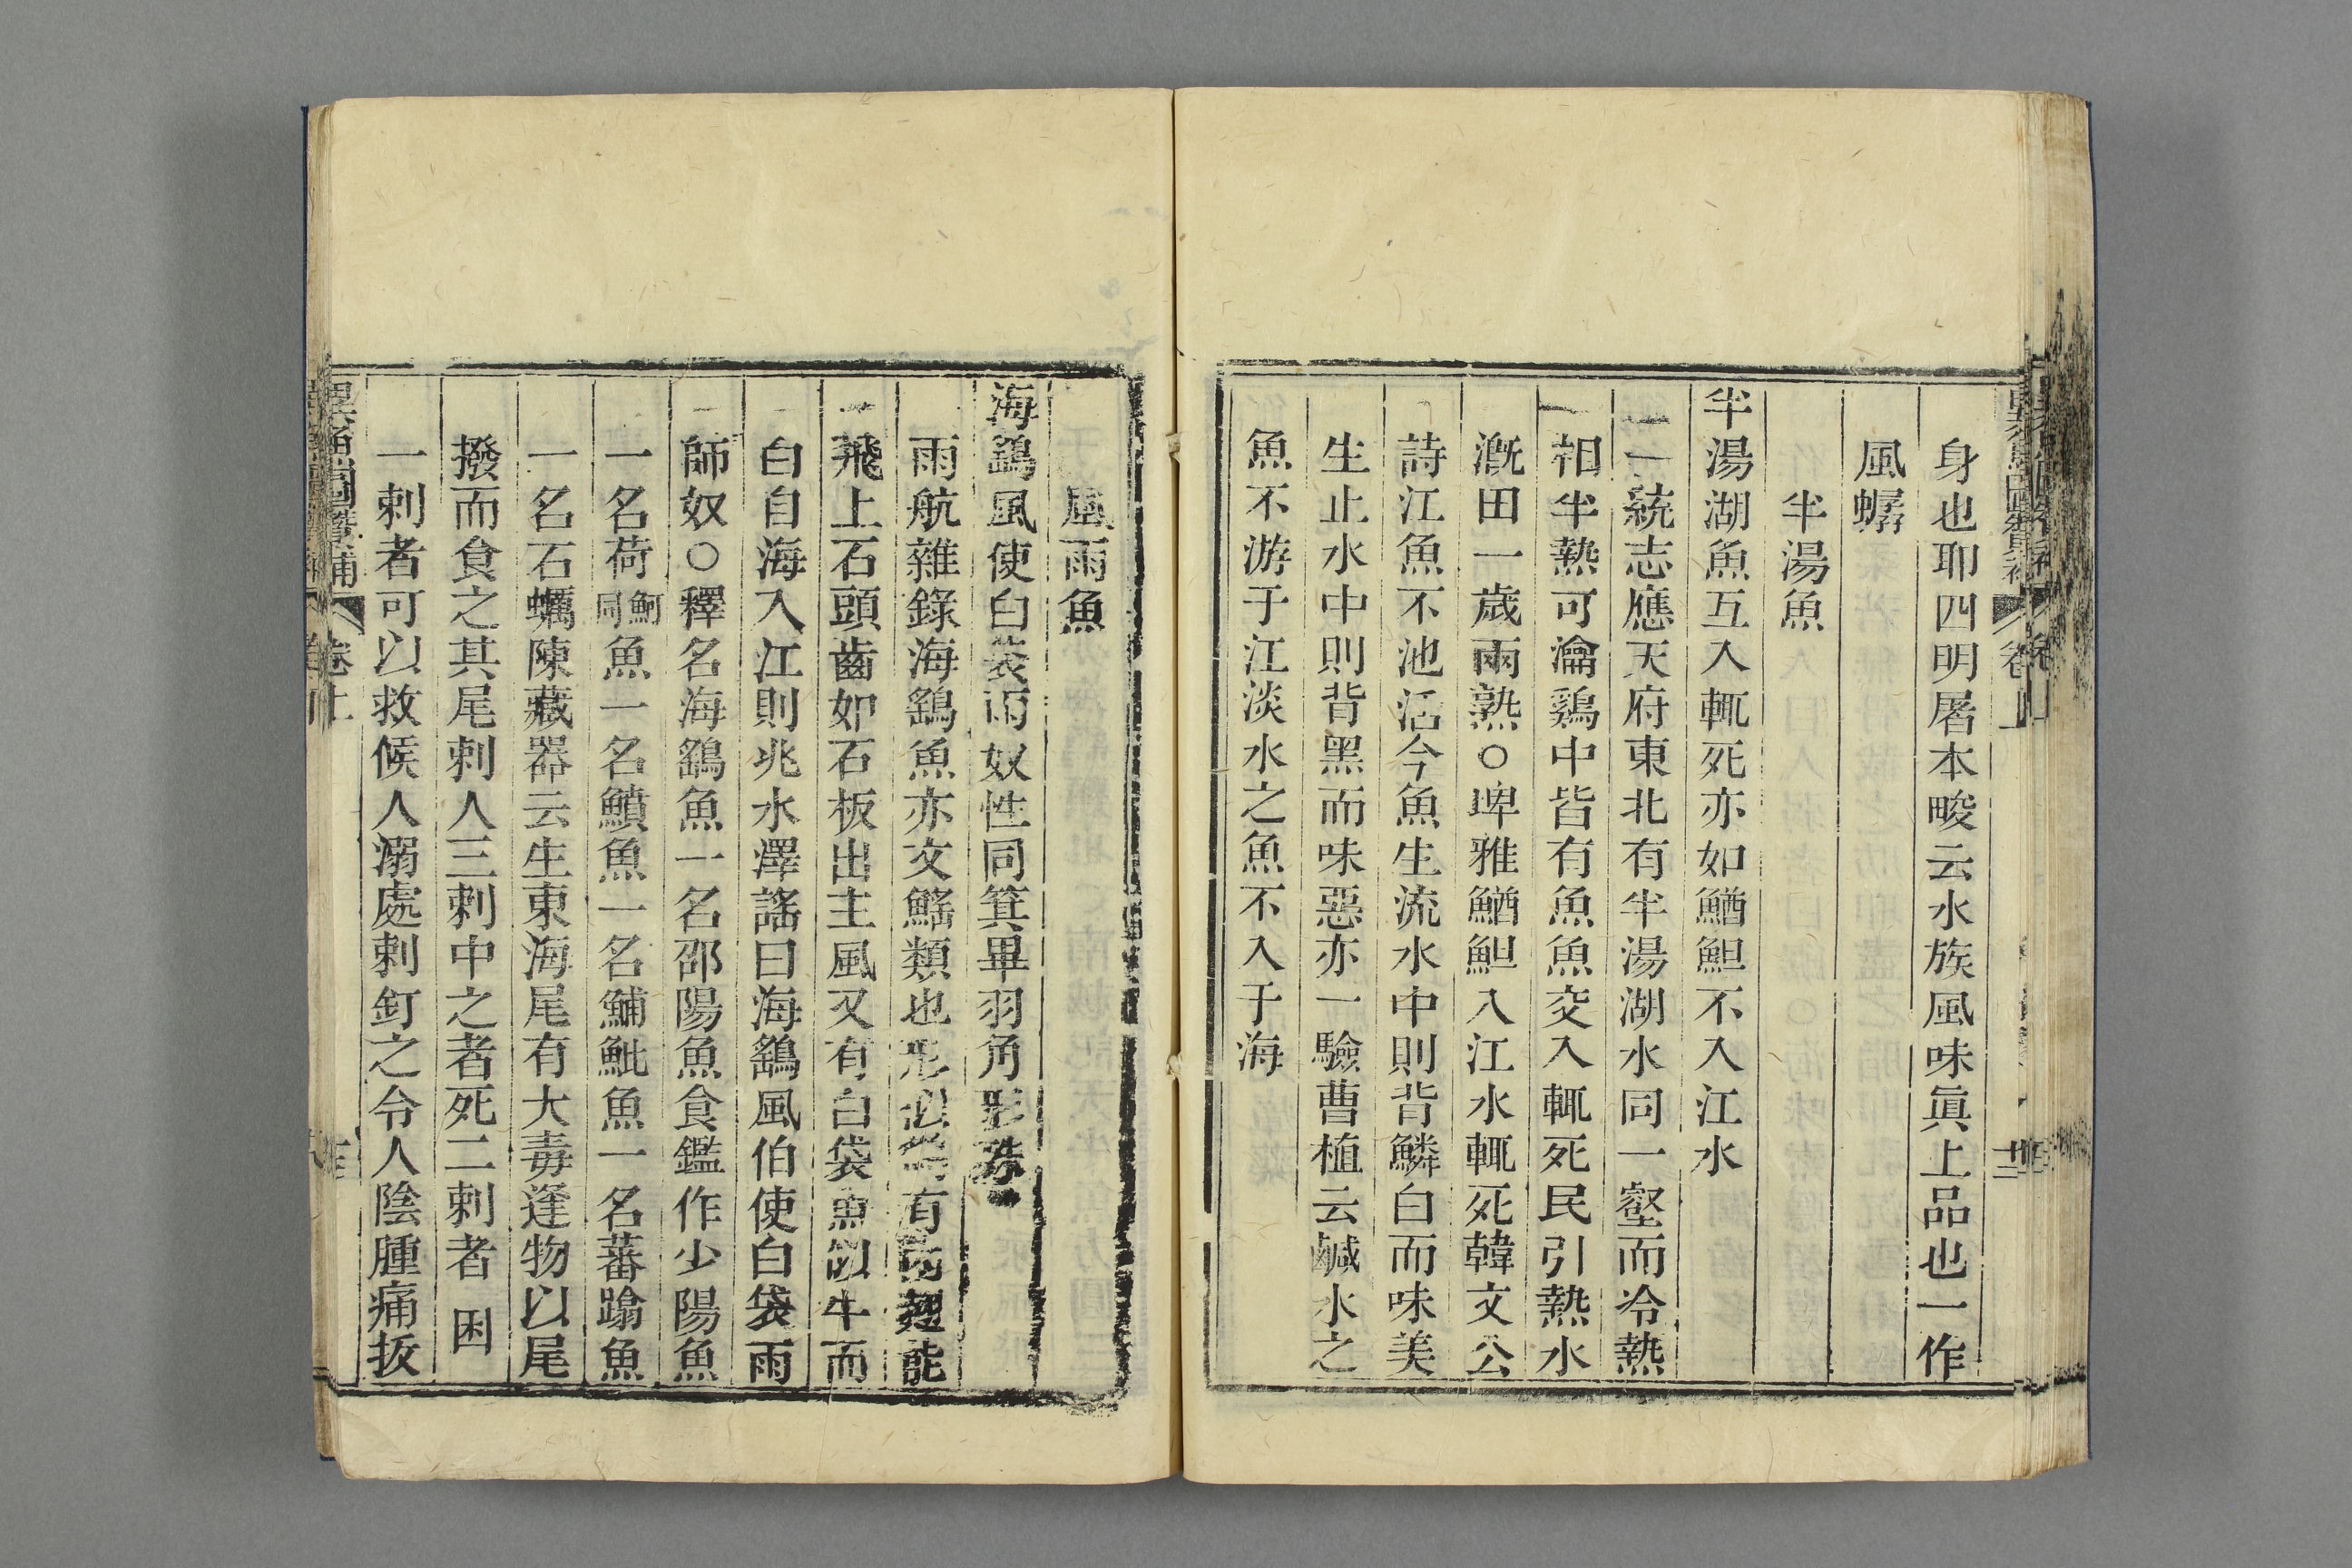 身也耶四明屠本畯云水族風味眞上品也一作
風蠕
半湯魚
半湯湖魚互入輒死亦如鰌䱇不入江水
一統志應天府東北有半湯湖水同一壑而冷熱
相半熱可瀹鷄中皆有魚魚交入輒死民引熱水
漑田一歲兩熟○埤雅鰌䱇入江水輒死韓文公
詩江魚不池活今魚生流水中則背鱗白而味美
生止水中則背黑而味惡亦一驗曹植云鹹水之
魚不游于江淡水之魚不入于海
風雨魚
海鷂風使白袋雨奴性同箕畢羽角形殊
雨航雜錄海鷂魚亦文鰩類也形似鷂有肉翅能
飛上石頭齒如石板出主風又有白袋魚似牛而
白自海入江則兆水澤謠曰海鷂風伯使白袋雨
師奴○釋名海鷂魚一名邵陽魚食鑑作少陽魚
一名荷魺同魚一名鱝魚一名鯆魮魚一名蕃踰魚
一名石蠣陳藏器云生東海尾有大毒逢物以尾
撥而食之其尾刺人三刺中之者死二刺者困
一刺者可以救候人溺處刺釘之令人陰腫痛拔
異魚圖贊補 卷中